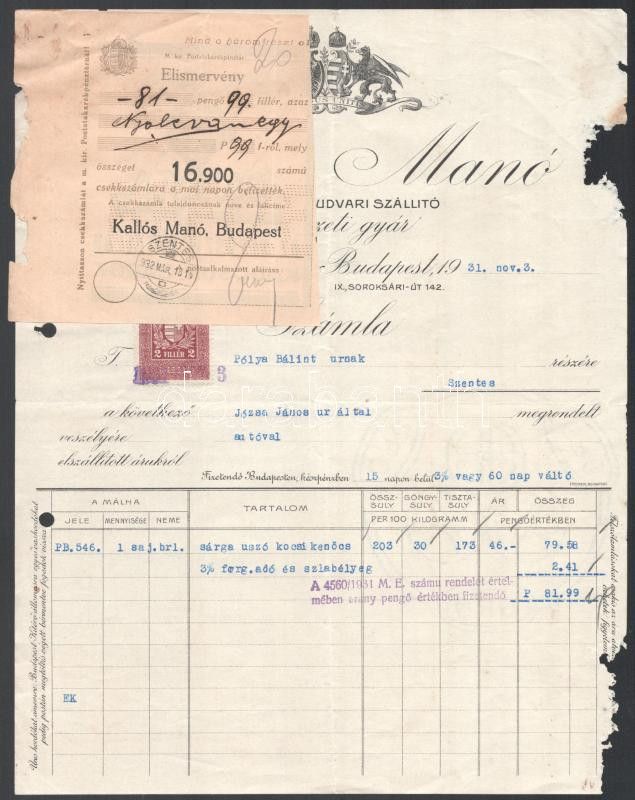 Mind a három részt
20
M. kir. Postatakarékpénztár
Elismervény
–81– pengő 99 fillér, azaz
Nyolcvanegy
P 99 f-ról, mely
összeget 16.900 számú
csekkszámlára a mai napon befizették.
A csekkszámla tulajdonosának neve és lakcíme:
Kallós Manó, Budapest
SZENTES
932 MÁR. 
postaalkalmazott aláírása
Nyittasson csekkszámlát a m. kir. Postatakarékpénztárnál!
Manó
UDVARI SZÁLLITÓ
zeti gyár
Budapest, 19 31. nov. 3.
IX., SOROKSÁRI-ÚT 142.
Számla
2 FILLÉR 2
3
T. Pólya Bálint urnak részére
Szentes
a következő Józsa János ur által megrendelt
veszélyére autóval
elszállított árukról
Fizetendő Budapesten, készpénzben 15 napon belül 3% vagy 60 nap váltó
A MÁLHA TARTALOM ÖSSZ-SULY GÖNGY-SULY TISZTA-SULY ÁR ÖSSZEG
JELE MENNYISÉGE NEME PER 100 KILOGRAMM PENGŐÉRTÉKBEN
PB.546. 1 saj.brl. sárga uszó kocsikenőcs 203 30 173 46.- 79.58
3% forg.adó és szlabélyeg 2.41
A 4560/1931 M. E. számu rendelet értel-
mében arany pengő értékben fizetendő P 81.99
EK
darabanth